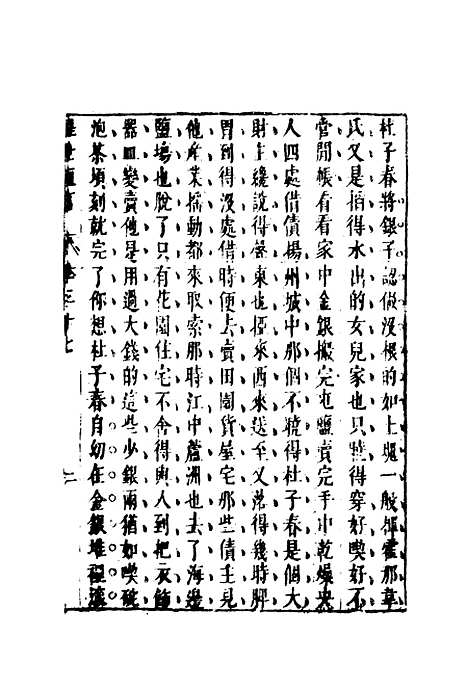 杜子春將銀子認做沒根的如土塊一般揮霍那韋
氏又是掐得水出的女兒家也只曉得穿好喫好不
管閒帳看看家中金銀搬完屯鹽賣完手中乾燥央
人四處借債揚州城中那個不曉得杜子春是個大
財主纔說得聲東也掗來西來送至又落得幾時脾
胃到得沒處借時便去賣田園貨屋宅那些債主見
他產業搖動都來取索那時江中蘆洲也去了海邊
鹽場也脫了只有花園住宅不舍得與人到把衣飾
器皿變賣他是用過大錢的這些少銀兩猶如喫碗
泡茶頃刻就完了你想杜子春自幼在金銀堆裡滾
醒世恆言 卷三十七 二